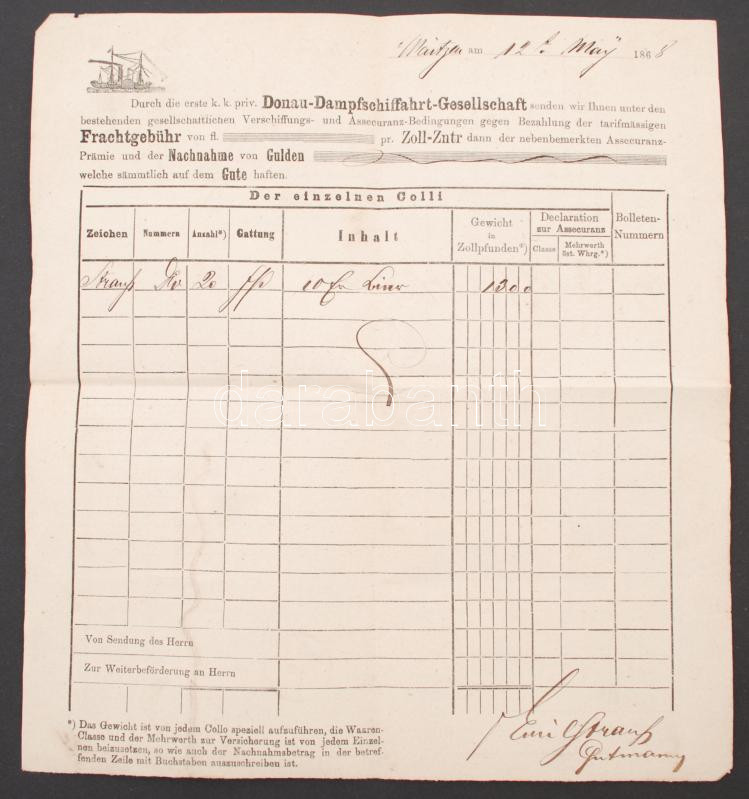 Waitzen am 12t May 1868
Durch die erste k. k. priv. Donau-Dampfschiffahrt-Gesellschaft senden wir Ihnen unter den
bestehenden gesellschaftlichen Verschiffungs- und Assecuranz-Bedingungen gegen Bezahlung der tarifmässigen
Frachtgebühr von fl. pr. Zoll-Zntr dann der nebenbemerkten Assecuranz-
Prämie und der Nachnahme von Gulden
welche sämmtlich auf dem Gute haften.
Der einzelnen Colli
Zeichen Nummern Anzahl*) Gattung Inhalt Gewicht in Zollpfunden*) Declaration zur Assecuranz Classe Mehrwerth öst. Whrg.*) Bolleten-Nummern
Strauß 20 10 1300
darabanth
Von Sendung des Herrn
Zur Weiterbeförderung an Herrn
*) Das Gewicht ist von jedem Collo speziell aufzuführen, die Waaren-
Classe und der Mehrwerth zur Versicherung ist von jedem Einzel-
nen beizusetzen, so wie auch der Nachnahmsbetrag in der betref-
fenden Zeile mit Buchstaben auszuschreiben ist.
Strauß
Gutmann